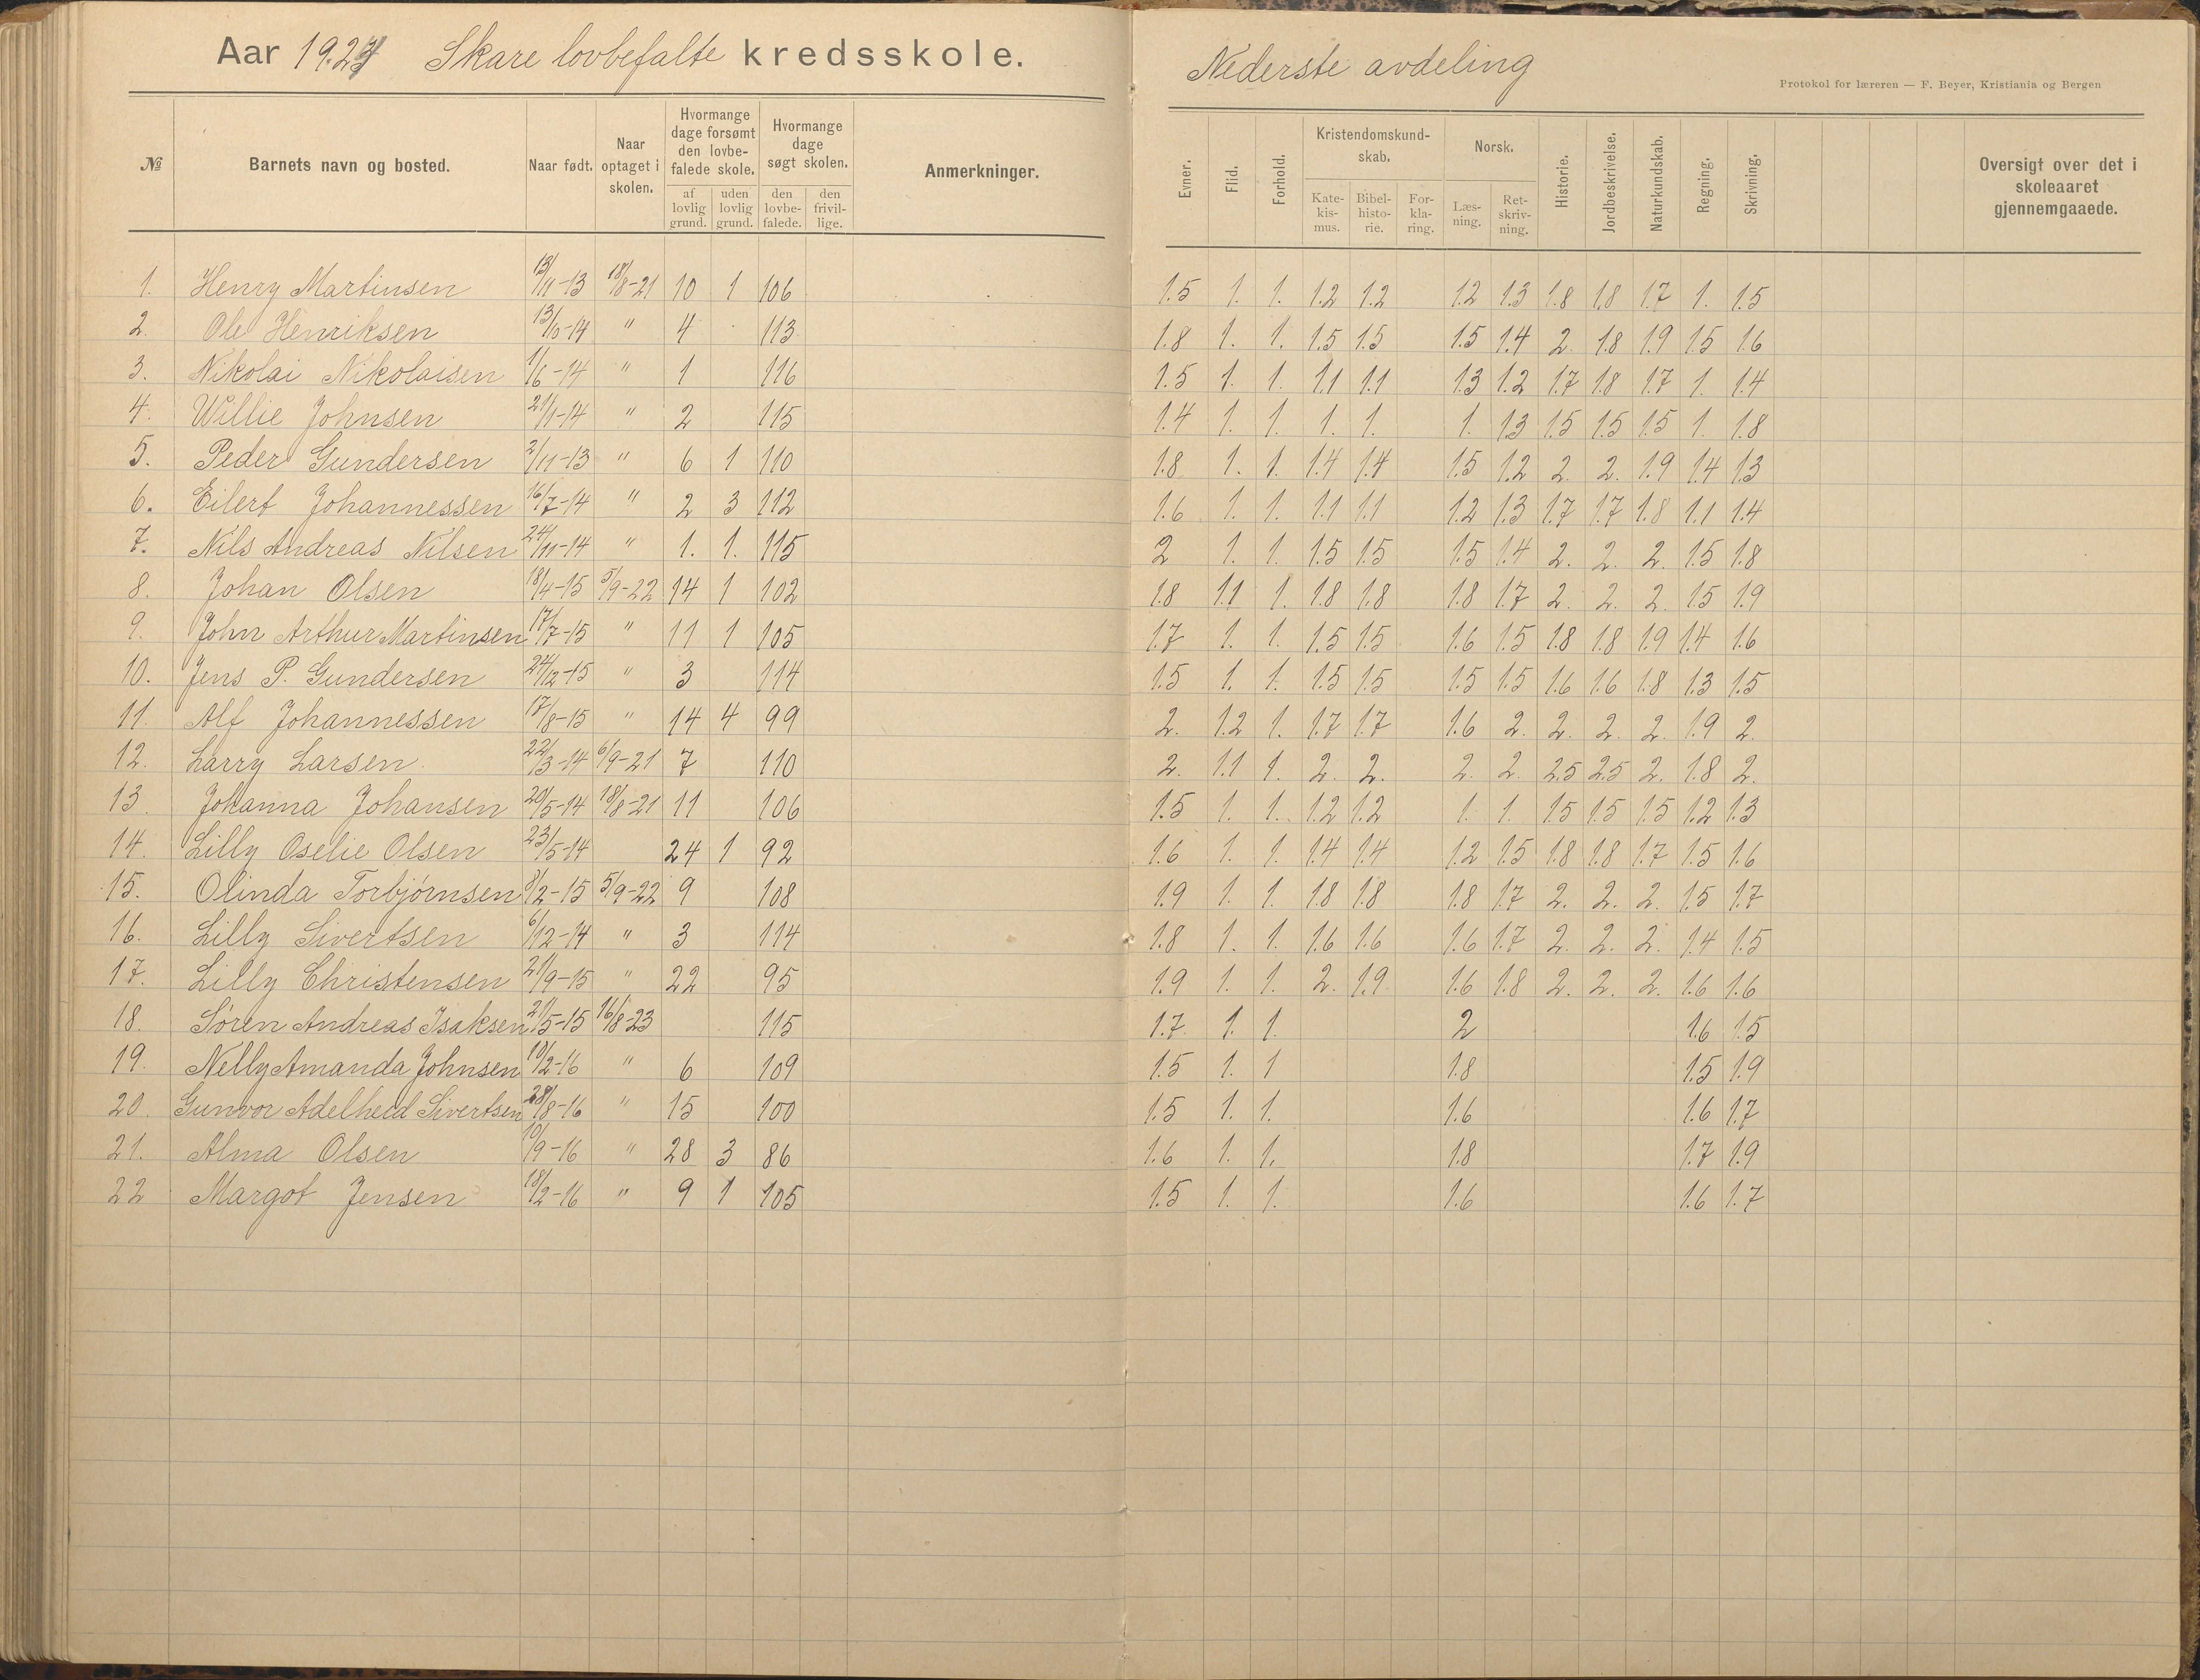 Aar 1924 Skare lovbefalte kredsskole.
Nederste avdeling
Protokol for læreren — F. Beyer, Kristiania og Bergen
№ Barnets navn og bosted. Naar født. Naar optaget i skolen. Hvormange dage forsømt den lovbefalede skole. af lovlig grund. uden lovlig grund. Hvormange dage søgt skolen. den lovbefalede. den frivillige. Anmerkninger. Evner. Flid. Forhold. Kristendomskundskab. Katekismus. Bibelhistorie. Forklaring. Norsk. Læsning. Retskrivning. Historie. Jordbeskrivelse. Naturkundskab. Regning. Skrivning. Oversigt over det i skoleaaret gjennemgaaede.
1. Henry Martinsen 13/11-13 18/8-21 10 1 106 1.5 1. 1. 1.2 1.2 1.2 1.3 1.8 1.8 1.7 1. 1.5
2. Ole Henriksen 13/10-14 " 4 113 1.8 1. 1. 1.5 1.5 1.5 1.4 2. 1.8 1.9 1.5 1.6
3. Nikolai Nikolaisen 1/6-14 " 1 116 1.5 1. 1. 1.1 1.1 1.3 1.2 1.7 1.8 1.7 1. 1.4
4. Willie Johnsen 21/1-14 " 2 115 1.4 1. 1. 1. 1. 1. 1.3 1.5 1.5 1.5 1. 1.8
5. Peder Gundersen 2/11-13 " 6 1 110 1.8 1. 1. 1.4 1.4 1.5 1.2 2. 2. 1.9 1.4 1.3
6. Eilert Johannessen 16/7-14 " 2 3 112 1.6 1. 1. 1.1 1.1 1.2 1.3 1.7 1.7 1.8 1.1 1.4
7. Nils Andreas Nilsen 24/11-14 " 1. 1. 115 2 1. 1. 1.5 1.5 1.5 1.4 2. 2. 2. 1.5 1.8
8. Johan Olsen 18/4-15 5/9-22 14 1 102 1.8 1.1 1. 1.8 1.8 1.8 1.7 2. 2. 2. 1.5 1.9
9. John Arthur Martinsen 17/7-15 " 11 1 105 1.7 1. 1. 1.5 1.5 1.6 1.5 1.8 1.8 1.9 1.4 1.6
10. Jens P. Gundersen 24/12-15 " 3 114 1.5 1. 1. 1.5 1.5 1.5 1.5 1.6 1.6 1.8 1.3 1.5
11. Alf Johannessen 17/8-15 " 14 4 99 2. 1.2 1. 1.7 1.7 1.6 2. 2. 2. 2. 1.9 2.
12. Larry Larsen 22/3-14 6/9-21 7 110 2. 1.1 1. 2. 2. 2. 2. 2.5 2.5 2. 1.8 2.
13. Johanna Johansen 20/5-14 18/8-21 11 106 1.5 1. 1. 1.2 1.2 1. 1. 1.5 1.5 1.5 1.2 1.3
14. Lilly Oselie Olsen 23/5-14 24 1 92 1.6 1. 1. 1.4 1.4 1.2 1.5 1.8 1.8 1.7 1.5 1.6
15. Olinda Torbjørnsen 8/2-15 5/9-22 9 108 1.9 1. 1. 1.8 1.8 1.8 1.7 2. 2. 2. 1.5 1.7
16. Lilly Sivertsen 6/12-14 " 3 114 1.8 1. 1. 1.6 1.6 1.6 1.7 2. 2. 2. 1.4 1.5
17. Lilly Christensen 21/9-15 " 22 95 1.9 1. 1. 2. 1.9 1.6 1.8 2. 2. 2. 1.6 1.6
18. Søren Andreas Isaksen 21/5-15 16/8-23 115 1.7 1. 1. 2 1.6 1.5
19. Nelly Amanda Johnsen 10/2-16 " 6 109 1.5 1. 1 1.8 1.5 1.9
20. Gunvor Adelheid Sivertsen 28/8-16 " 15 100 1.5 1. 1. 1.6 1.6 1.7
21. Alma Olsen 10/9-16 " 28 3 86 1.6 1. 1. 1.8 1.7 1.9
22 Margot Jensen 18/2-16 " 9 1 105 1.5 1. 1. 1.6 1.6 1.7